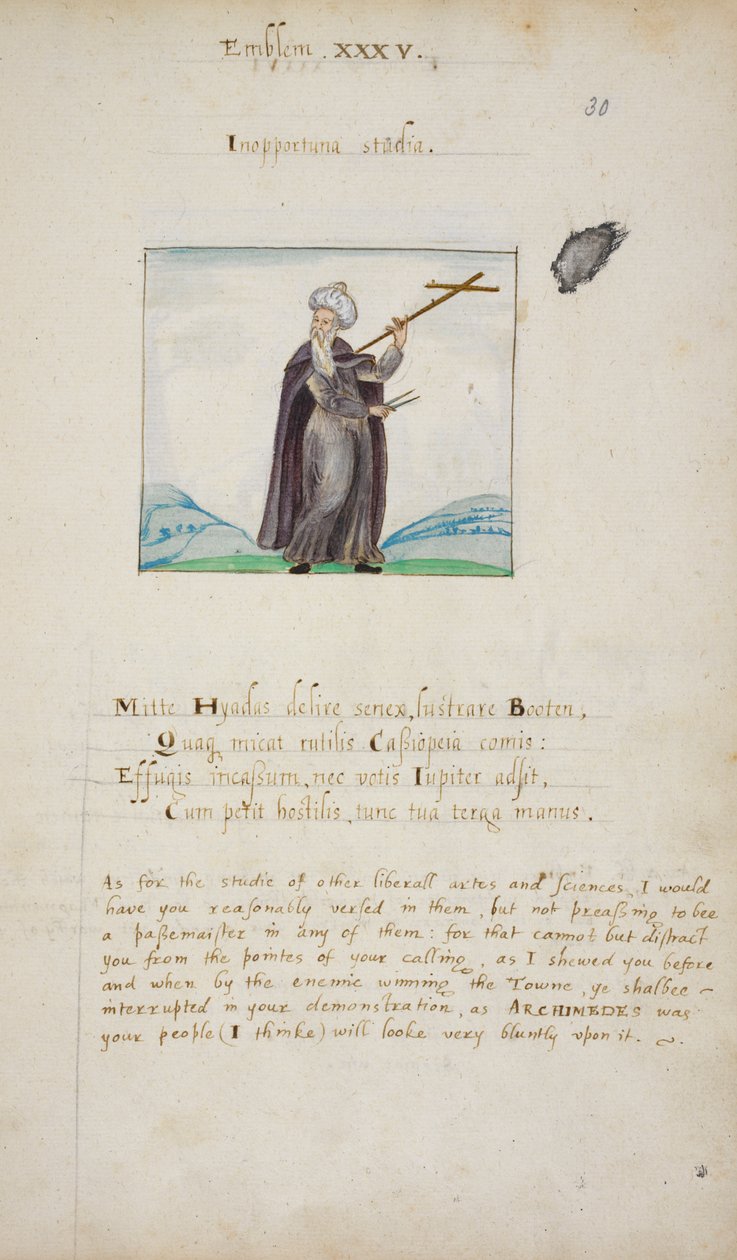 Emblem . XXXV.
30
Inopportuna studia .
Mitte Hyadas delire senex, lustrare Booten,
Quaq micat rutilis Caßiopeia comis :
Effugis incaßum, nec votis Iupiter adsit,
Cum petit hostilis, tunc tua terga manus .
As for the studie of other liberall artes and sciences, I would
have you reasonably versed in them, but not preaßing to bee
a paßemaister in any of them : for that cannot but distract
you from the pointes of your calling, as I shewed you before
and when by the enemie winning the Towne, ye shalbee
interrupted in your demonstration, as ARCHIMEDES was
your people (I thinke) will looke very bluntly vpon it.